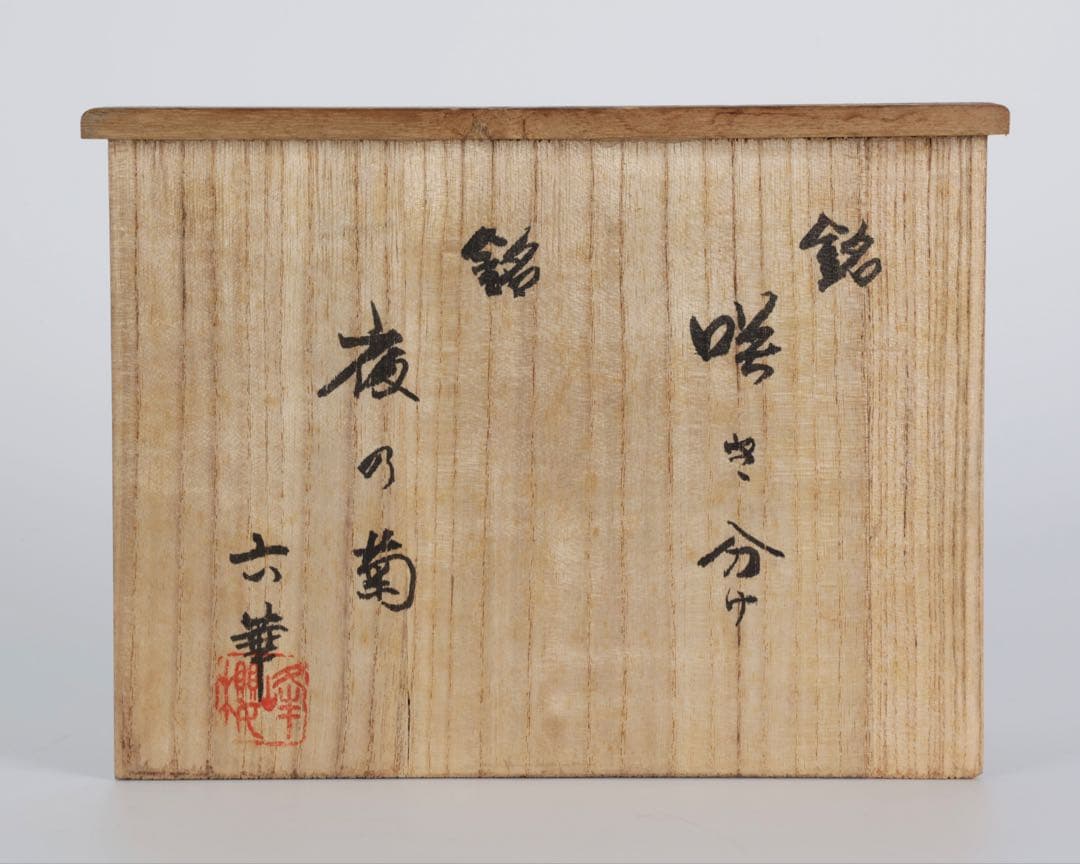 銘
咲き分け
銘
夜の菊
六華
峰櫻